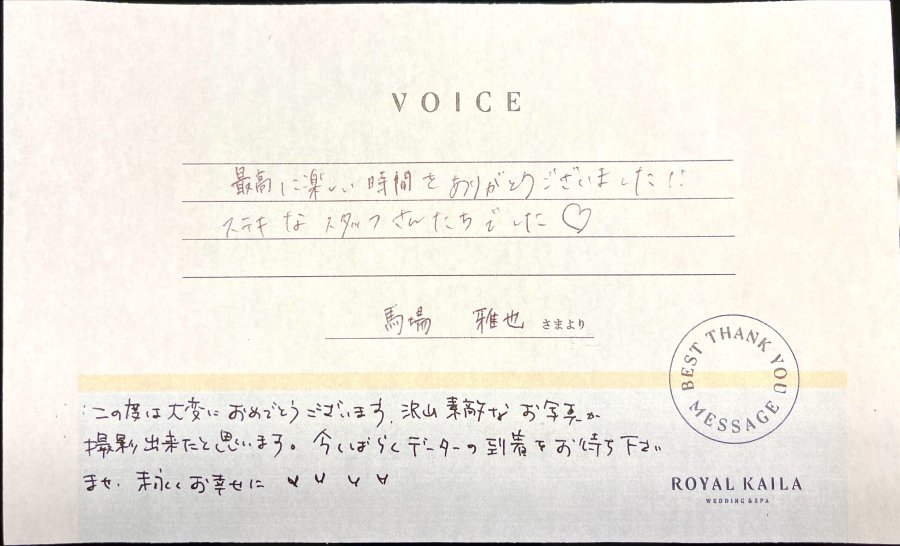 VOICE
最高に楽しい時間をありがとうございました!!
ステキなスタッフさんたちでした♡
馬場 雅也 さまより
BEST THANK YOU MESSAGE
この度は大変におめでとうございます。沢山素敵なお写真が
撮影出来たと思います。今しばらくデーターの到着をお待ち下さい
ませ。末永くお幸せに
ROYAL KAILA
WEDDING & SPA